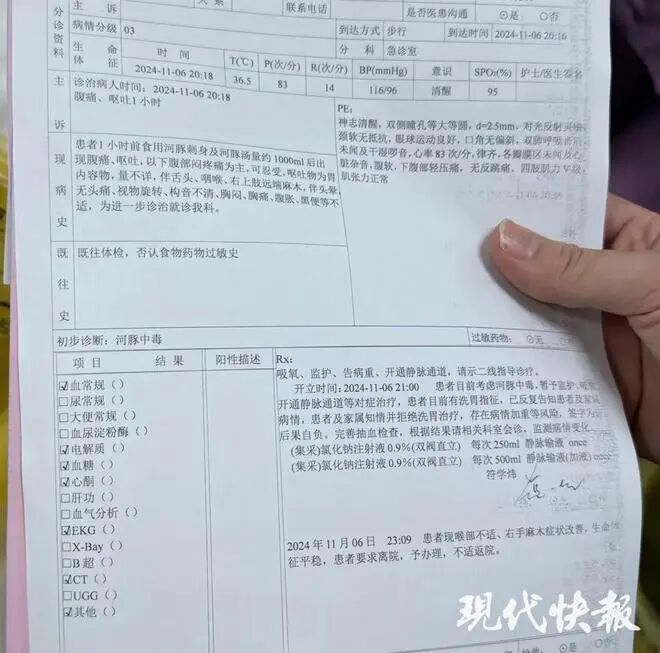 主 诉
联系电话
是否医患沟通 ⊙是 ○否
分诊资料
病情分级 03
到达方式 步行
到达时间 2024-11-06 20:16
分 科 急诊室
生命体征
时 间 T(℃) P(次/分) R(次/分) BP(mmHg) 意识 SPO₂(%) 护士/医生签名
2024-11-06 20:18 36.5 83 14 116/96 清醒 95
主诉
诊治病人时间:2024-11-06 20:18
腹痛、呕吐1小时
现病史
患者1小时前食用河豚刺身及河豚汤量约1000ml后出
现腹痛、呕吐,以下腹部闷疼痛为主,可忍受,呕吐物为胃
内容物,量不详,伴舌头、咽喉、右上肢远端麻木,伴头晕,
无头痛、视物旋转、构音不清、胸闷、胸痛、腹胀、黑便等不
适,为进一步诊治就诊我科。
PE:
神志清醒,双侧瞳孔等大等圆,d=2.5mm,对光反射灵敏,
颈软无抵抗,眼球运动良好,口角无偏斜,双肺呼吸音
未闻及干湿啰音,心率83次/分,律齐,各瓣膜区未闻及心
脏杂音,腹软,下腹部轻压痛,无反跳痛,四肢肌力V级,
肌张力正常
既往史
既往体检,否认食物药物过敏史
初步诊断:河豚中毒
过敏药物: ⊙无
项 目 结 果 阳性描述
☑血常规()
□尿常规()
□大便常规()
□血尿淀粉酶()
☑电解质()
☑血糖()
☑心酮()
□肝功()
□血气分析()
☑EKG()
□X-Bay()
□B超()
☑CT()
□UGG()
☑其他()
Rx:
吸氧、监护、告病重、开通静脉通道,请示二线指导诊疗。
开立时间:2024-11-06 21:00 患者目前考虑河豚中毒,暂予监护、吸氧、
开通静脉通道等对症治疗,患者目前有洗胃指征,已反复告知患者及家属
病情,患者及家属知情并拒绝洗胃治疗,存在病情加重等风险,签字为证
后果自负。完善抽血检查,根据结果请相关科室会诊,监测病情变化
(集采)氯化钠注射液0.9%(双阀直立) 每次250ml 静脉输液 once
(集采)氯化钠注射液0.9%(双阀直立) 每次500ml 静脉输液(加液) once
符学炜
2024年11月06日 23:09 患者现喉部不适、右手麻木症状改善,生命体
征平稳,患者要求离院,予办理,不适返院。
现代快报